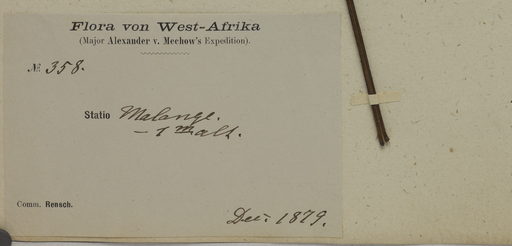 Flora von West-Afrika
(Major Alexander v. Mechow's Expedition).
№ 358.
Statio Malange.
– 1 m alt.
Comm. Rensch.
Dec. 1879.